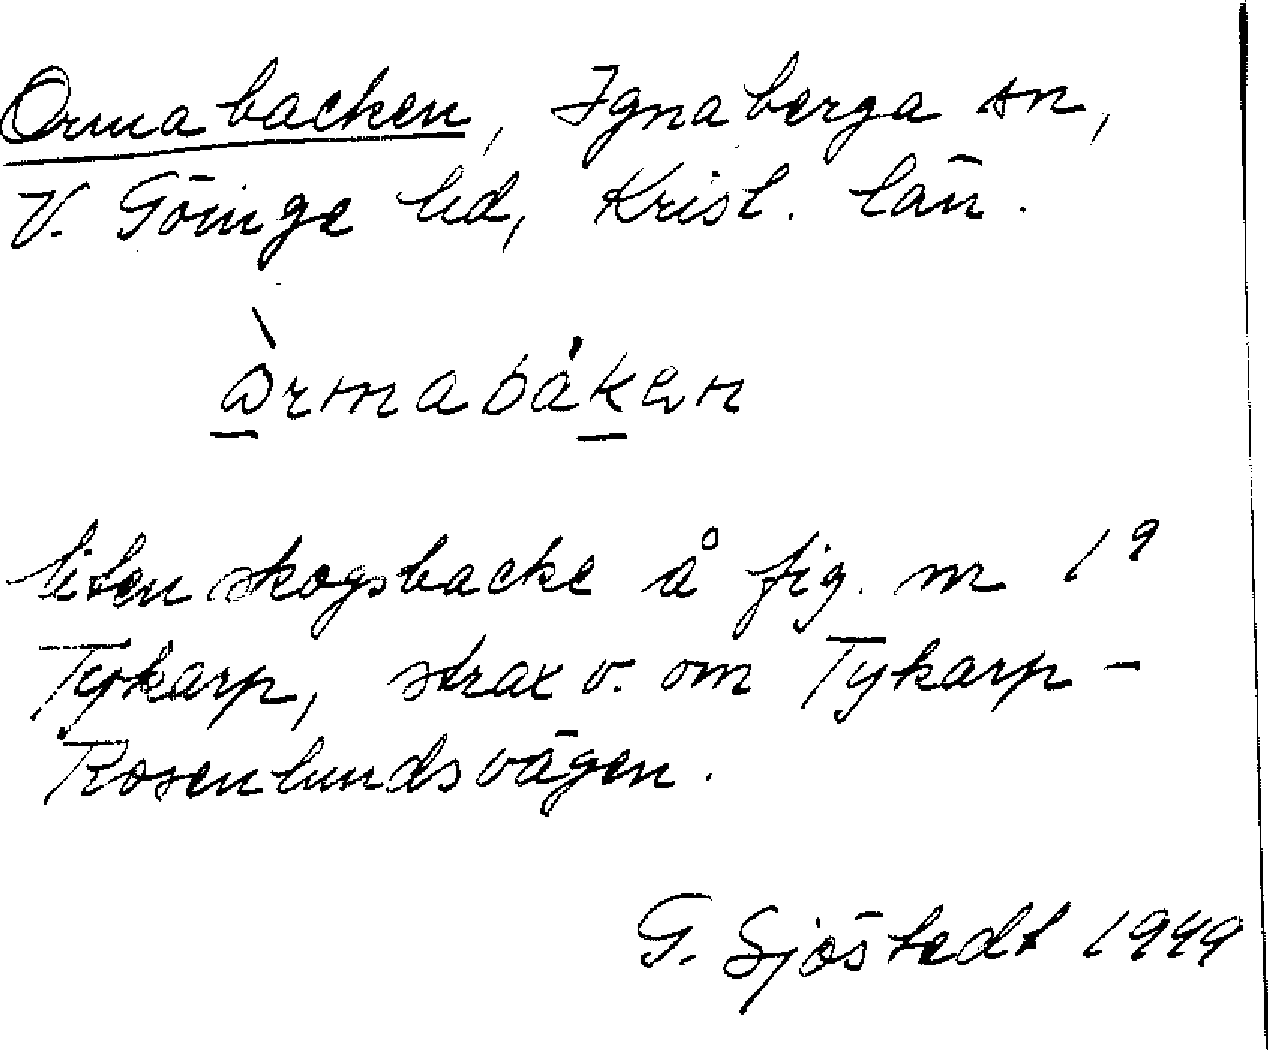 Ormabacken, Ignaberga sn,
V. Göinge hd, Krist. län.
òrmabákен
liten skogsbacke å fig. m 1⁹
Tykarp, strax v. om Tykarp-
Rosenlundsvägen.
G. Sjöstedt 1949